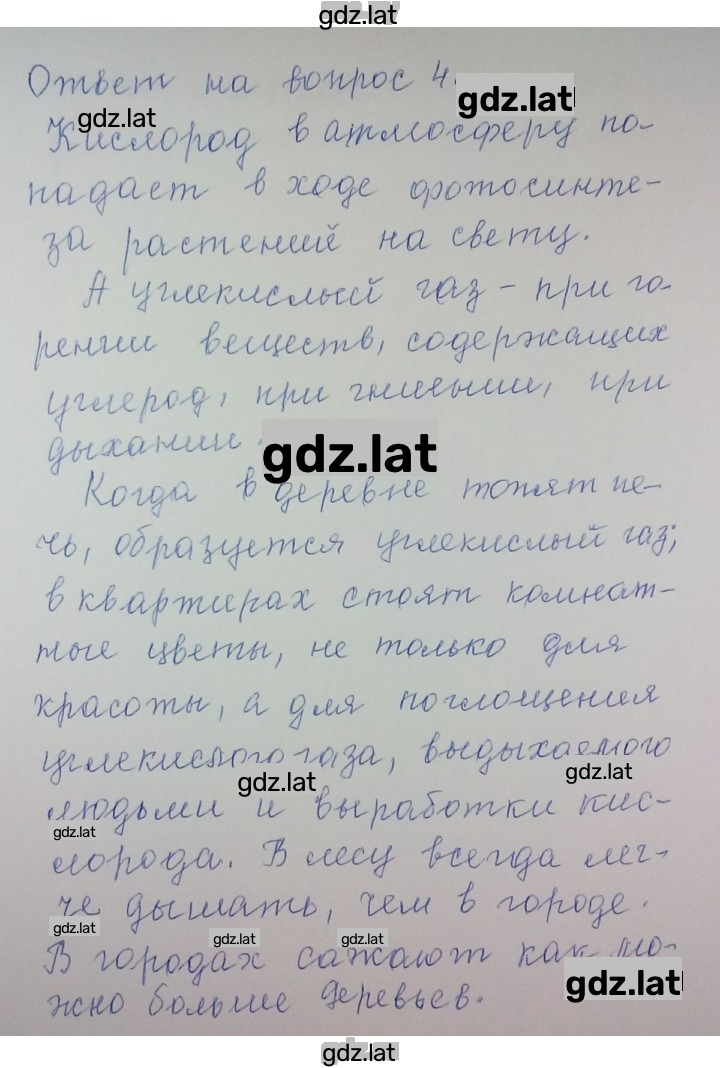 gdz.lat
Ответ на вопрос 4.
gdz.lat
gdz.lat
Кислород в атмосферу по-
падает в ходе фотосинте-
за растений на свету.
А углекислый газ - при го-
рении веществ, содержащих
углерод, при гниении, при
дыхании.
gdz.lat
Когда в деревне топят пе-
чь, образуется углекислый газ;
в квартирах стоят комнат-
ные цветы, не только для
красоты, а для поглощения
углекислого газа, выдыхаемого
gdz.lat
gdz.lat
людьми и выработки кис-
gdz.lat
лорода. В лесу всегда лег-
че дышать, чем в городе.
gdz.lat
gdz.lat
gdz.lat
В городах сажают как мо-
жно больше деревьев.
gdz.lat
gdz.lat